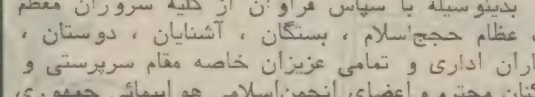 بدینوسیله با سپاس فراوان از کلیه سروران معظم
عظام حجج‌اسلام ، بستگان ، آشنایان ، دوستان ،
اران اداری و تمامی عزیزان خاصه مقام سرپرستی و
کنان محترم و اعضای انجمن‌اسلامی هواپیمائی جمهوری